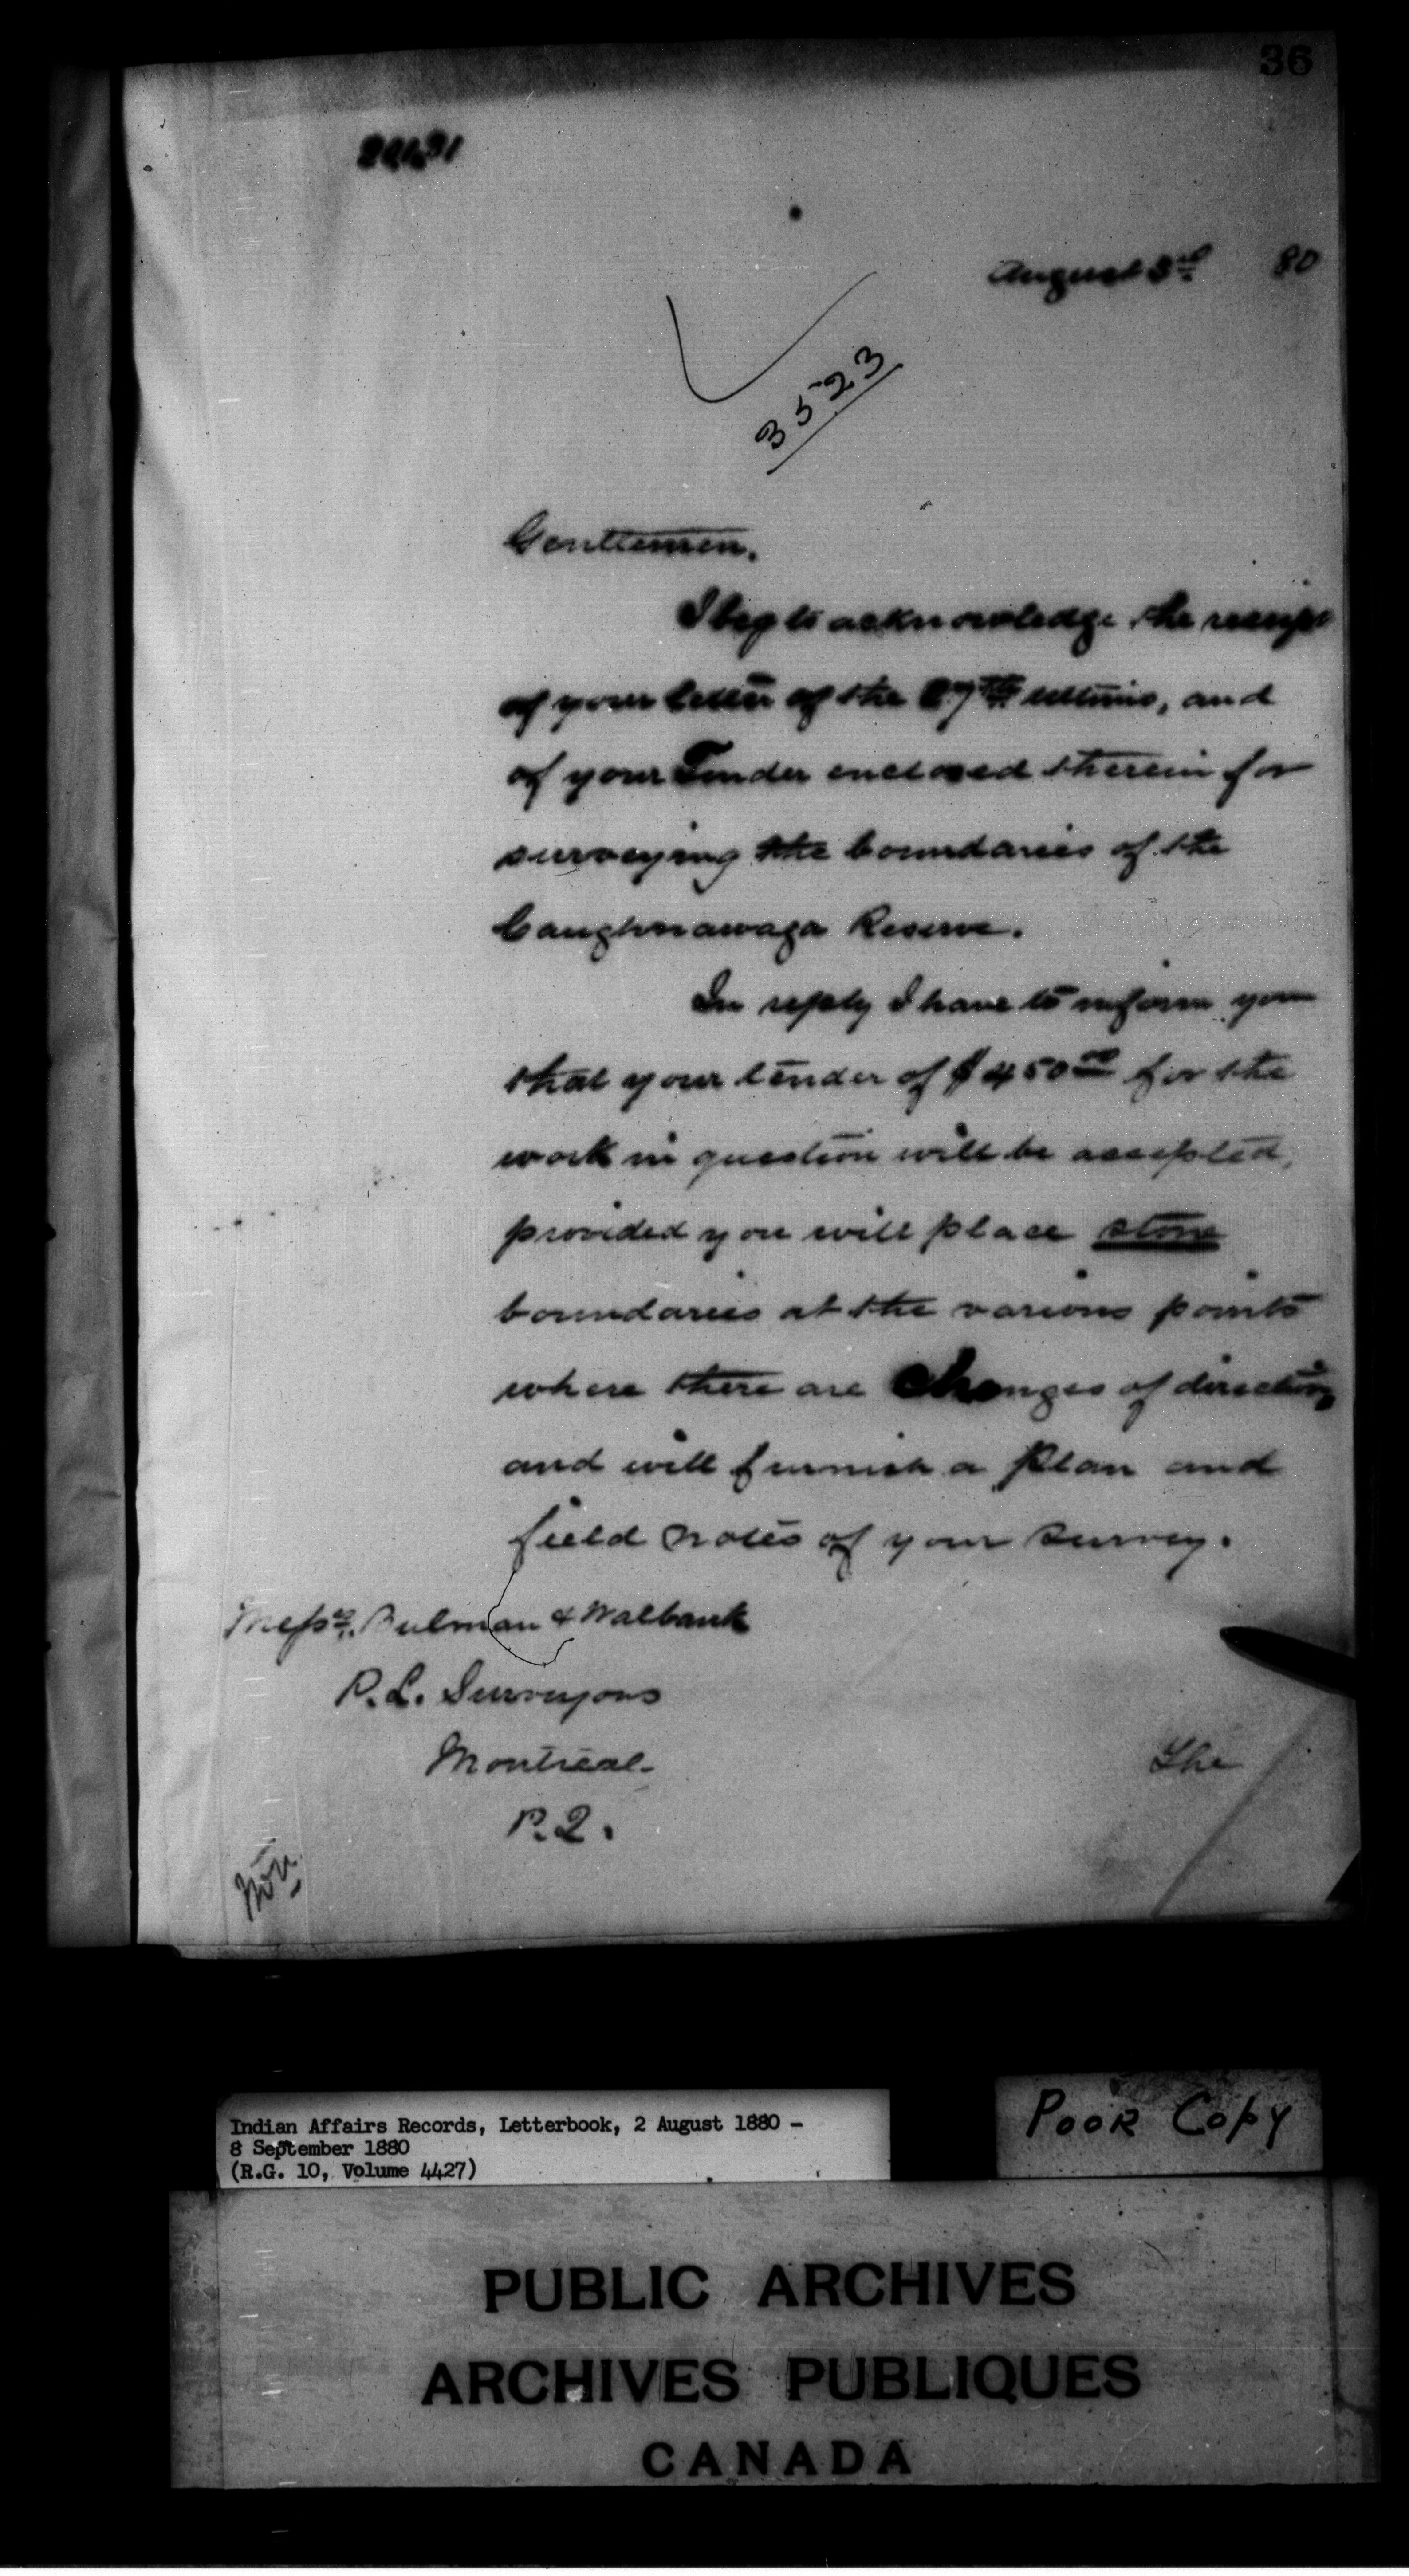 36
August 3rd 80
3523
Gentlemen.
I beg to acknowledge the receipt
of your letter of the 27th ultimo, and
of your Tender enclosed therein for
surveying the boundaries of the
Caughnawaga Reserve.
In reply I have to inform you
that your tender of $450.00 for the
work in question will be accepted,
provided you will place stone
boundaries at the various points
where there are changes of direction,
and will furnish a plan and
field notes of your survey.
Messrs. Bulman & Walbank
P.L. Surveyors
Montreal.
P.Q.
The
Indian Affairs Records, Letterbook, 2 August 1880 -
8 September 1880
(R.G. 10, Volume 4427)
Poor Copy
PUBLIC ARCHIVES
ARCHIVES PUBLIQUES
CANADA